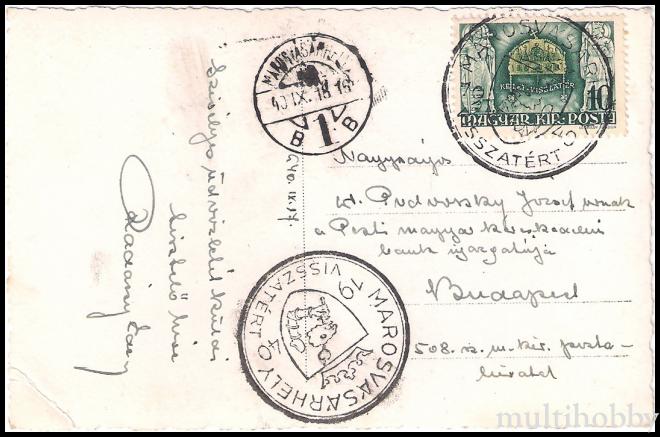 MAROSVÁSÁRHELY
40 IX. 18 16
V V
1
B B
KELET VISSZATÉR
10
MAGYAR KIR. POSTA
MAROSVÁSÁRHELY
VISSZATÉRT
940. IX. 17.
Szívélyes üdvözlettel küldi
tisztelő híve
Nagyságos
József úrnak
a Pesti magyar kereskedelmi
bank igazgatója
Budapest
508. sz. m. kir. posta-
hivatal
MAROSVÁSÁRHELY
19 40
VISSZATÉRT
multihobby